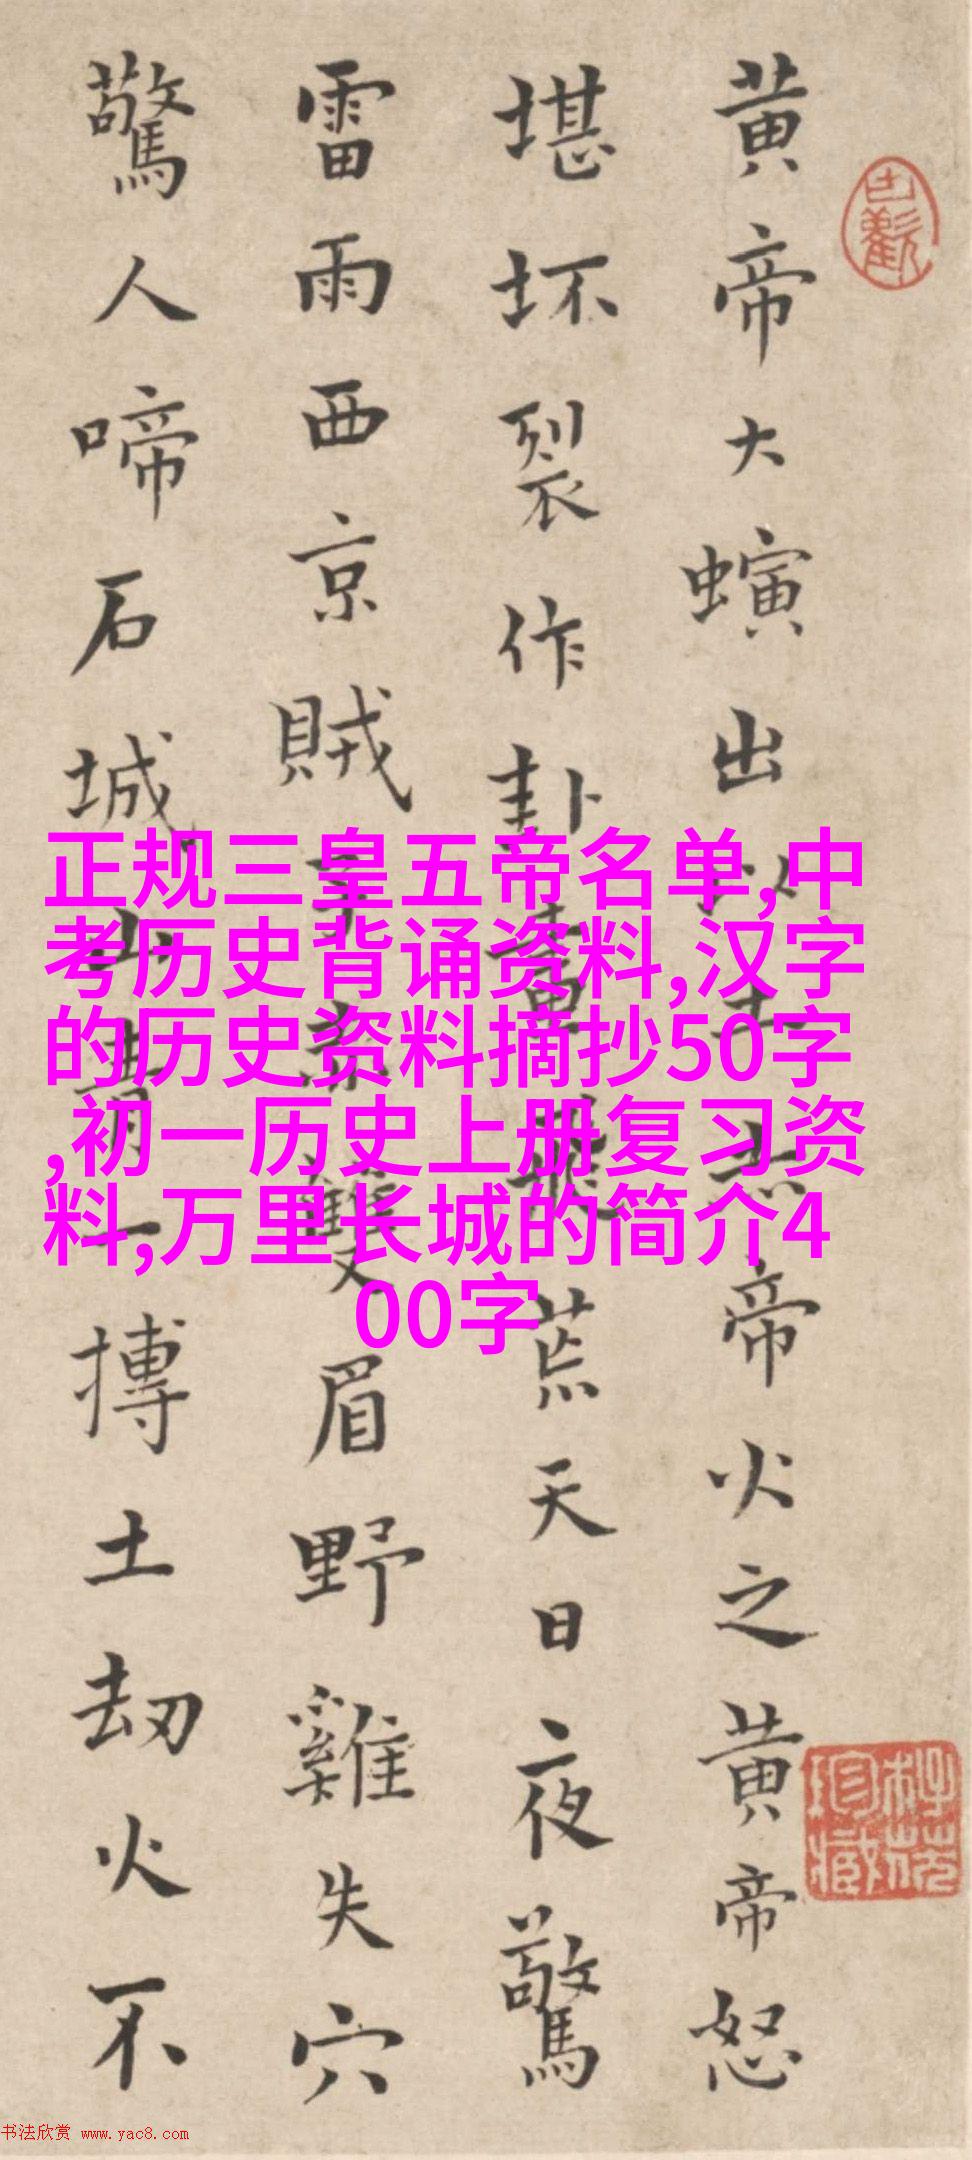 黄帝大螾出以土𢘆帝火之黄帝怒
堪坏裂作卦畫龍荒天日夜驚
雷雨西京賊子赤雙眉野雞失穴
驚人啼石城山青一摶土劫火不
正规三皇五帝名单,中
考历史背诵资料,汉字
的历史资料摘抄50字
,初一历史上册复习资
料,万里长城的简介4
00字
书法欣赏 www.yac8.com